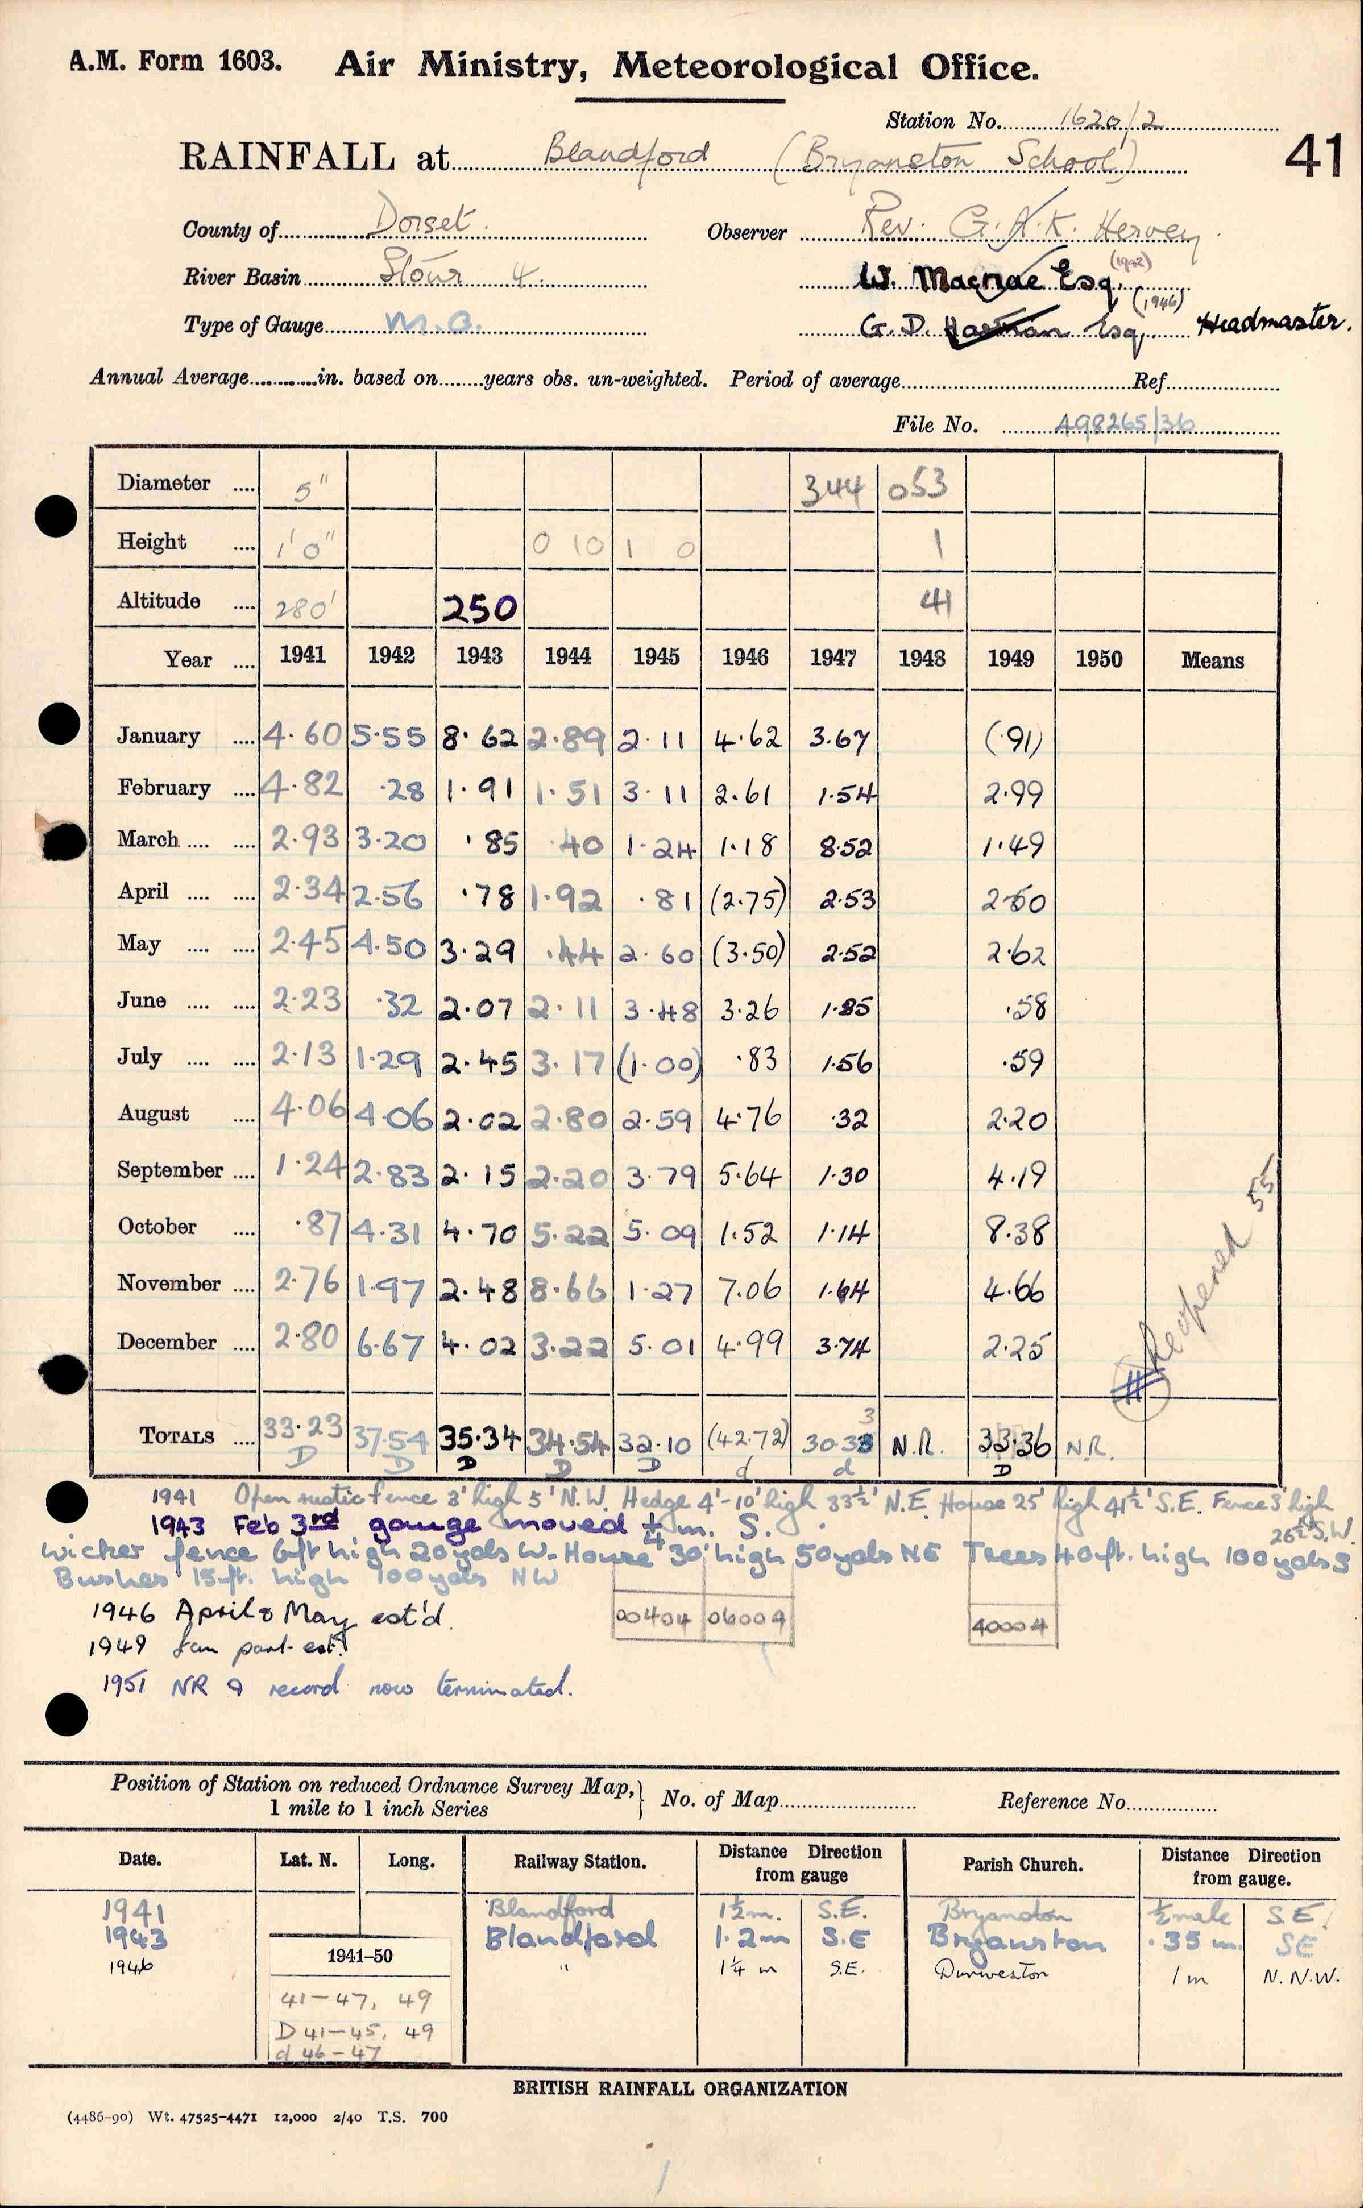 A.M. Form 1603. Air Ministry, Meteorological Office.
Station No. 1620/2
41
RAINFALL at Blandford (Bryanston School)
County of Dorset. Observer Rev. G.A.K. Hervey
River Basin Stour 4. W. Macnae Esq. (1942)
Type of Gauge M.O. G. D. Esq. (1946) Headmaster.
Annual Average in. based on years obs. un-weighted. Period of average Ref
File No. A98265/36
Diameter .... 5" 344 053
Height .... 1' 0" 0 10 1 0 1
Altitude .... 280' 250 41
Year .... 1941 1942 1943 1944 1945 1946 1947 1948 1949 1950 Means
January .... 4.60 5.55 8.62 2.89 2.11 4.62 3.67 (.91)
February .... 4.82 .28 1.91 1.51 3.11 2.61 1.54 2.99
March .... .... 2.93 3.20 .85 .40 1.24 1.18 8.52 1.49
April .... .... 2.34 2.56 .78 1.92 .81 (2.75) 2.53 2.50
May .... .... 2.45 4.50 3.29 .44 2.60 (3.50) 2.52 2.62
June .... .... 2.23 .32 2.07 2.11 3.48 3.26 1.85 .58
July .... .... 2.13 1.29 2.45 3.17 (1.00) .83 1.56 .59
August .... 4.06 4.06 2.02 2.80 2.59 4.76 .32 2.20
September .... 1.24 2.83 2.15 2.20 3.79 5.64 1.30 4.19
October .... .87 4.31 4.70 5.22 5.09 1.52 1.14 8.38
November .... 2.76 1.97 2.48 8.66 1.27 7.06 1.64 4.66
December .... 2.80 6.67 4.02 3.22 5.01 4.99 3.74 2.25
Reopened 55
TOTALS .... 33.23 37.54 35.34 34.54 32.10 (42.72) 30.33 N.R. 33.36 N.R.
3
D D D D D d d D
1941 Open rustic fence 3' high 5' N.W. Hedge 4'-10' high 33½' N.E. House 25' high 41½' S.E. Fence 3' high
26½' S.W.
1943 Feb 3rd gauge moved ¼ m. S.
Wicker fence 6ft high 20yds W. House 30' high 50yds NE Trees 40ft. high 100yds S
Bushes 15ft. high 100yds NW
1946 April & May est'd.
00404 06009 40004
1949 Jan part est.
1951 NR & record now terminated.
Position of Station on reduced Ordnance Survey Map,
1 mile to 1 inch Series
No. of Map Reference No.
Date. Lat. N. Long. Railway Station. Distance Direction from gauge Parish Church. Distance Direction from gauge.
1941 Blandford 1½m. S.E. Bryanston ½ mile S.E.
1943 Blandford 1.2m S.E Bryanston .35 m. SE
1946 " 1¼ m S.E. Durweston 1 m N.N.W.
1941-50
41-47, 49
D 41-45, 49
d 46-47
BRITISH RAINFALL ORGANIZATION
(4486-90) Wt. 47525-4471 12,000 2/40 T.S. 700